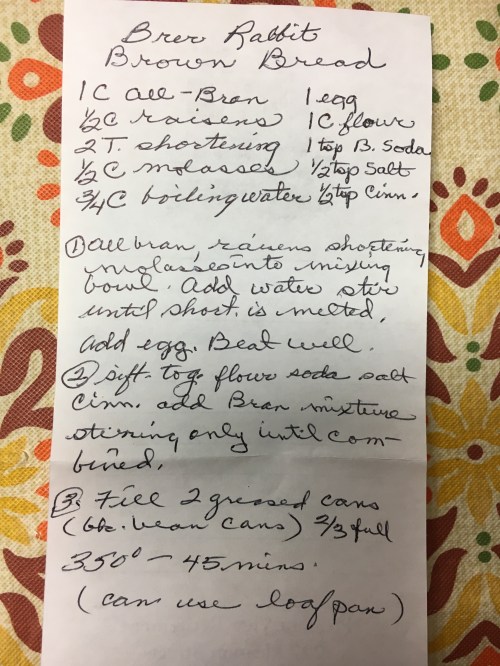 Brer Rabbit
Brown Bread
1 C all-Bran 1 egg
½ C raisens 1 C flour
2 T. shortening 1 tsp B. Soda
½ C molasses ½ tsp Salt
¾ C boiling water ½ tsp Cinn.
① all bran, raisens shortening,
molasses into mixing
bowl. add water stir
until short. is melted.
add egg. Beat well.
② sift. tog. flour soda salt
Cinn. add Bran mixture
stirring only until com-
bined.
③. Fill 2 greased cans
( bean cans) 2/3 full
350° - 45 mins.
(can use loaf pan)